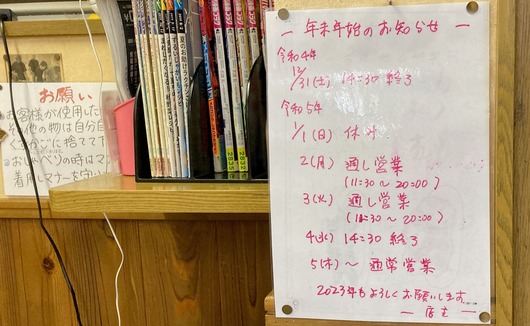 お願い
お客様が使用した
その他の物は自分自
くずかごに捨てて下
おしゃべりの時はマ
着用しマナーを守
一 年末年始のお知らせ 一
令和4年
12/31(土) 14:30 終了
令和5年
1/1(日) 休み
2(月) 通し営業
(11:30〜20:00)
3(火) 通し営業
(11:30〜20:00)
4(水) 14:30 終了
5(木)〜 通常営業
2023年もよろしくお願いします
一 店主 一